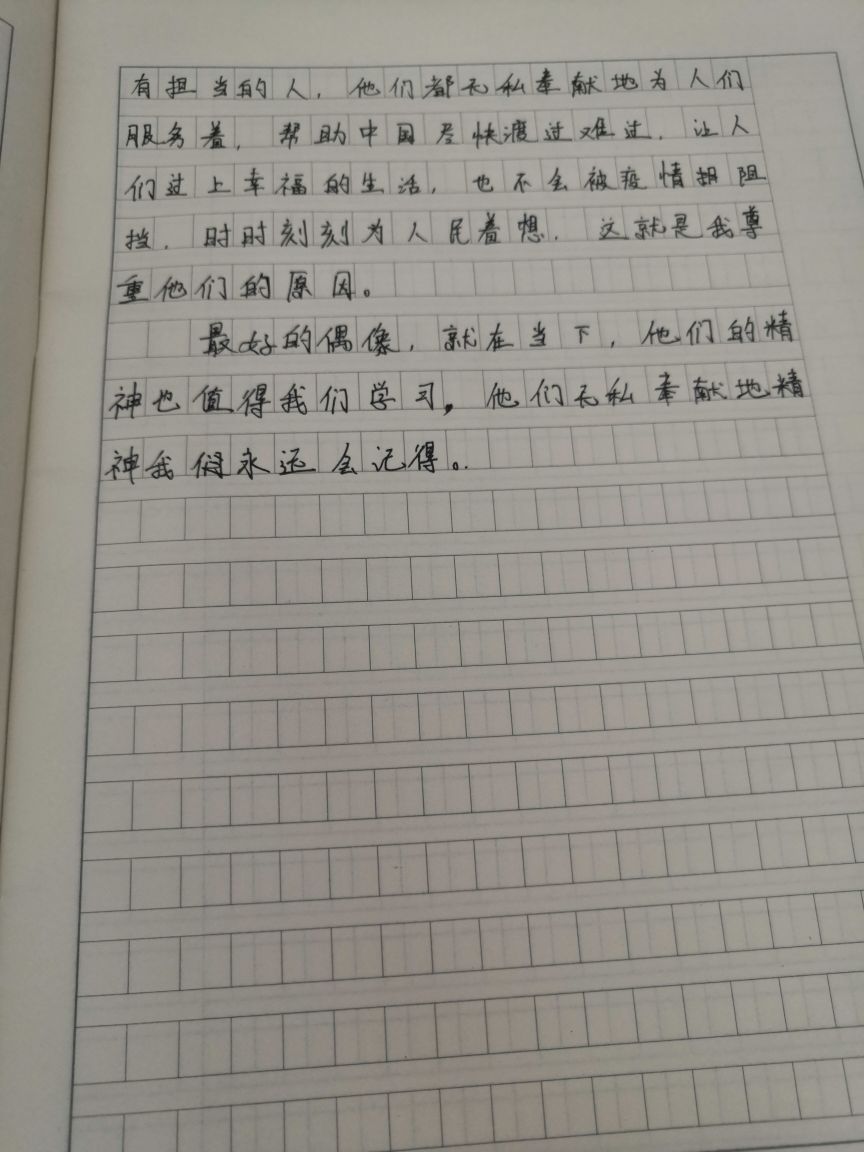 有担当的人，他们都无私奉献地为人们
服务着，帮助中国尽快渡过难过，让人
们过上幸福的生活，也不会被疫情阻
挡，时时刻刻为人民着想，这就是我尊
重他们的原因。
最好的偶像，就在当下，他们的精
神也值得我们学习，他们无私奉献地精
神我们永远会记得。